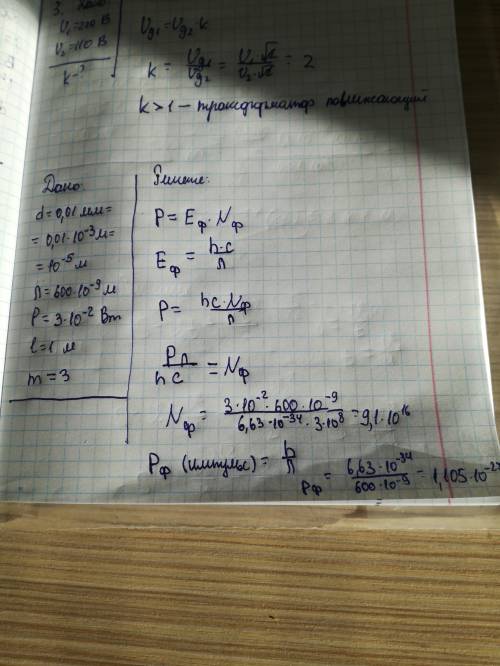 3. Дано
U₁=220 В
U₂=110 В
k-?
Ug₁=Ug₂·k
k = Ug₁/Ug₂ = U₁·√2/U₂·√2 = 2
k>1 – трансформатор
Дано:
d=0,01 мм=
=0,01·10⁻³м=
=10⁻⁵м
λ=600·10⁻⁹м
P=3·10⁻² Вт
l=1 м
m=3
Решение:
P=Eф·Nф
Eф=h·c/λ
P= hc·Nф/λ
Pλ/hc = Nф
Nф = 3·10⁻²·600·10⁻⁹/6,63·10⁻³⁴·3·10⁸ =9,1·10¹⁶
Pф (импульс) = h/λ
Pф = 6,63·10⁻³⁴/600·10⁻⁹ =1,105·10